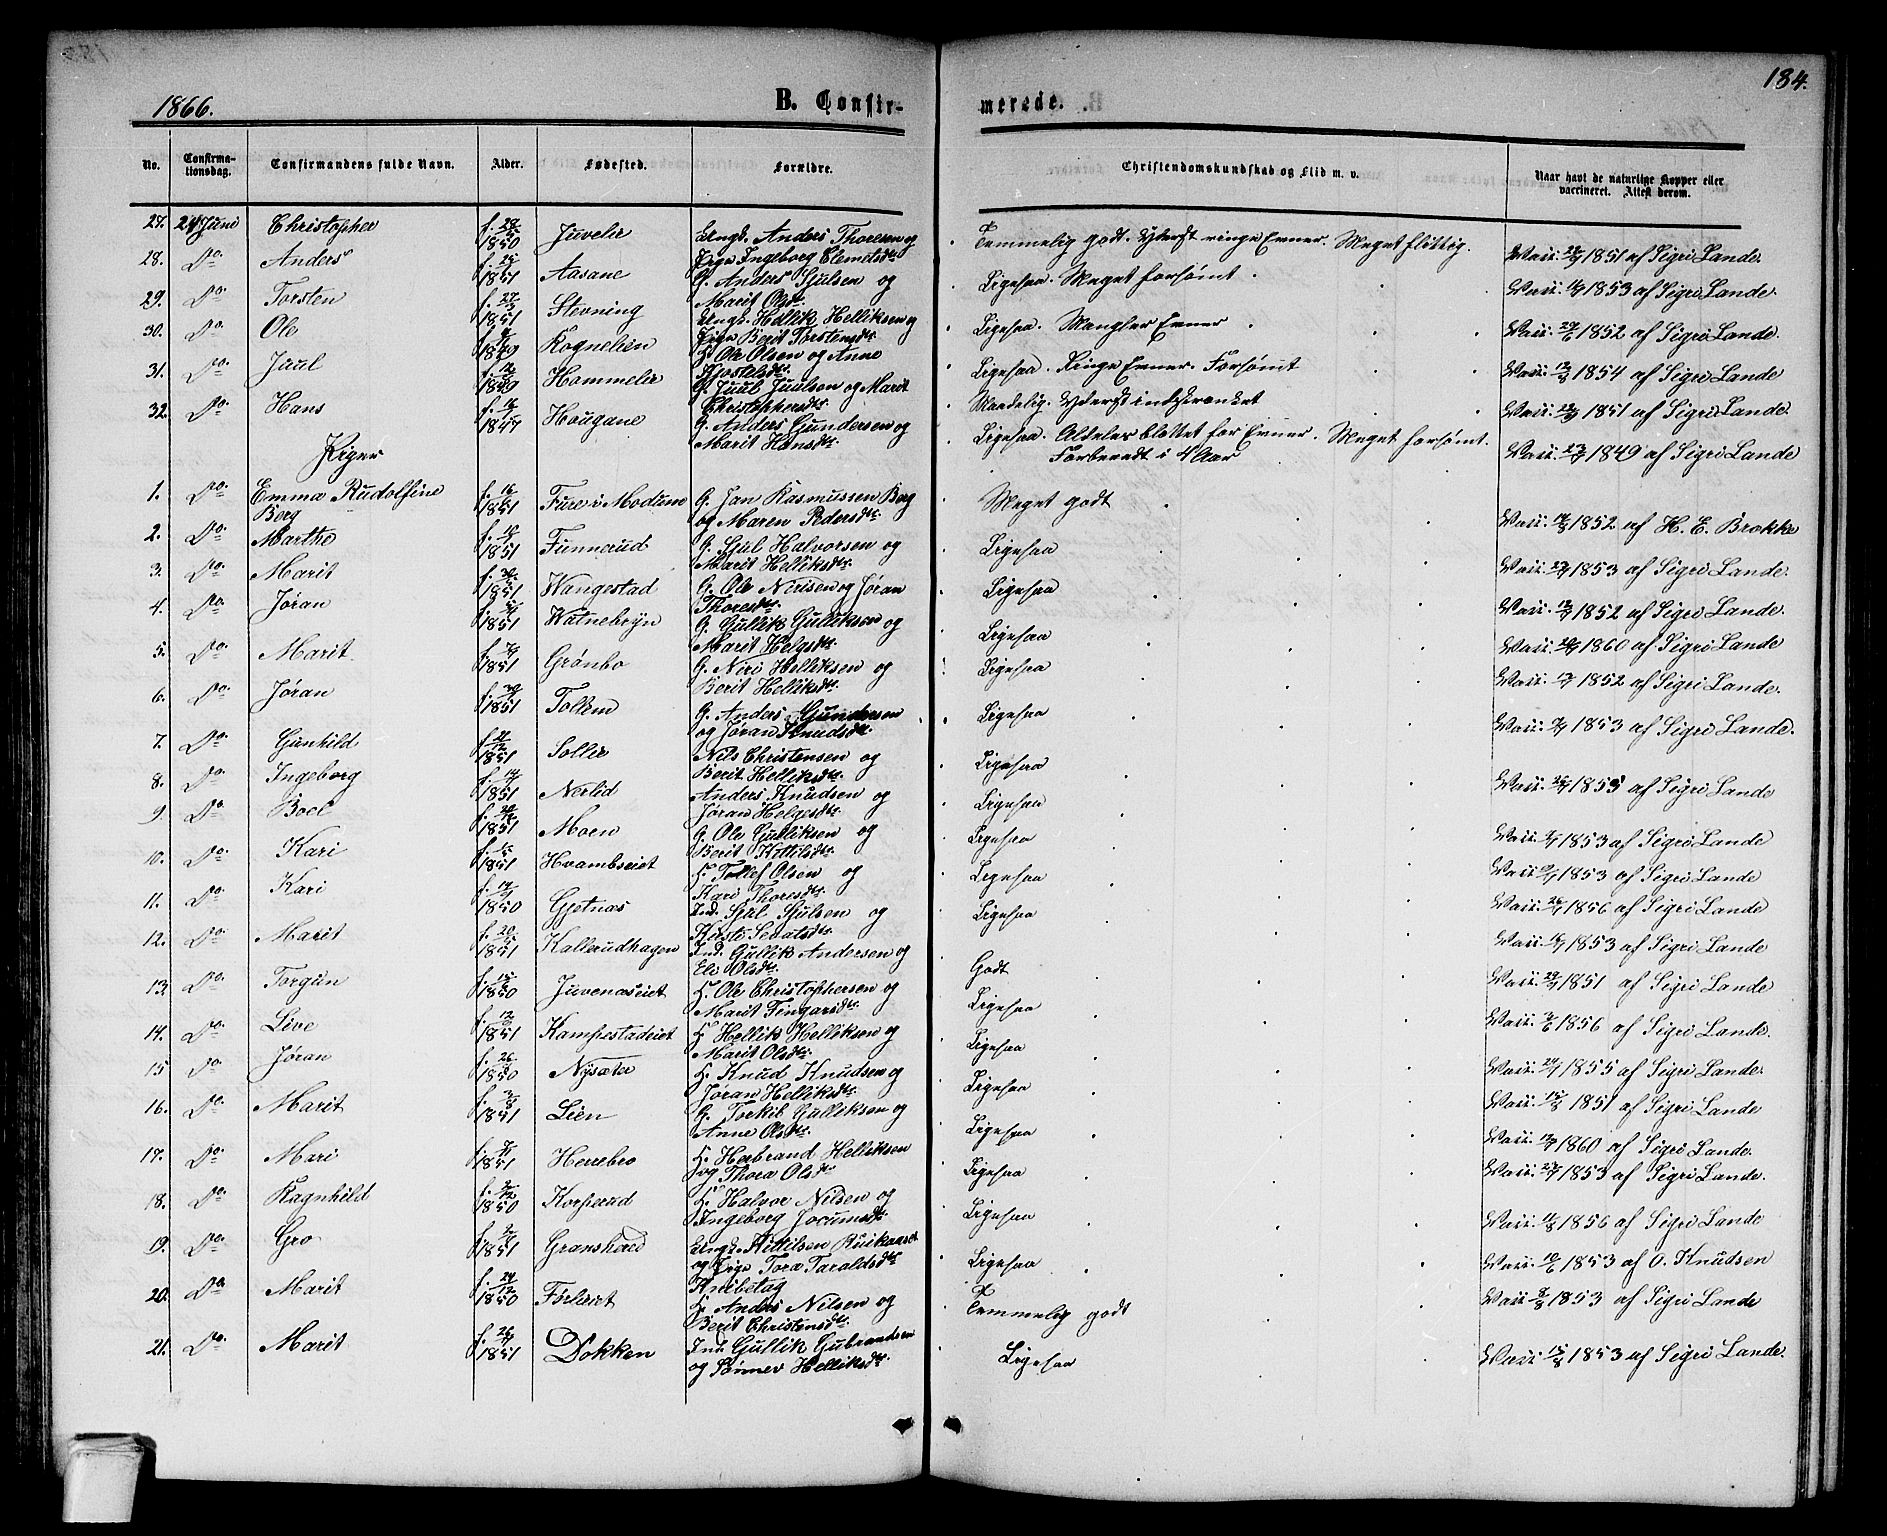 184.
1866. B. Confirmerede.
No. Confirmationsdag. Confirmandens fulde Navn. Alder. Fødested. Forældre. Christendomskundskab og Flid m. v. Naar havt de naturlige Kopper eller vaccineret. Attest derom.
27. 24 Juni Christopher f. 1850 Juvelie Ungk. Anders Thoresen og Pige Ingeborg Clemetsdtr. Temmelig godt. Yderst ringe Evner. Meget flittig. Vacc. 1851 af Sigri Lande.
28. Do. Anders f. 1851 Aasane G. Anders Sjulsen og Marit Olsdtr. Ligesaa. Meget forsømt. Vacc. 1853 af Sigri Lande.
29. Do. Torsten f. 27 1851 Stevning Ungk. Hellik Helliksen og Pige Berit Torstensdtr. Ligesaa. Mangler Evner. Vacc. 1852 af Sigri Lande.
30. Do. Ole f. 1849 Rognelien H. Ole Olsen og Anne Kjostelsdtr. Ligesaa. Ringe Evner. Forsømt Vacc. 1854 af Sigri Lande
31. Do. Juul f. 12 1849 Hammelie G. Juul Juulsen og Marit Christophersdtr. Maadelig. Yderst indskrænket Vacc. 1851 af Sigri Lande.
32. Do. Hans f. 1847 Hougane G. Anders Gundersen og Marit Hansdtr. Ligesaa. Aldeles blottet for Evner. Meget forsømt. Forberedt i 4 Aar Vacc. 1849 af Sigri Lande
Piger
1. Do. Emma Rudolfine Berg f. 16 1851 Fure i Modum G. Jan Rasmussen Berg og Maren Pedersdtr. Meget godt Vacc. 1852 af H. E. Brokke
2. Do. Marthe f. 1851 Funnerud G. Sjul Halvorsen og Marit Helliksdtr. Ligesaa Vacc. 1853 af Sigri Lande.
3. Do. Marit f. 30 1851 Wangestad G. Ole Nerisen og Jøran Thoresdtr. Ligesaa Vacc. 1852 af Sigri Lande.
4. Do. Jøran f. 1851 Watnebryn G. Gullik Gulliksen og Marit Helgesdtr. Ligesaa Vacc. 1860 af Sigri Lande.
5. Do. Marit f. 1851 Grønbo G. Niri Helliksen og Berit Helliksdtr. Ligesaa Vacc. 1852 af Sigri Lande.
6. Do. Jøran f. 30 1851 Tollem G. Anders Gundersen og Jøran Knudsdtr. Ligesaa Vacc. 1853 af Sigri Lande.
7. Do. Gunhild f. 1851 Sollie Nils Christensen og Berit Helliksdtr. Ligesaa Vacc. 1853 af Sigri Lande
8. Do. Ingeborg f. 1851 Nerlid Anders Knudsen og Jøran Helgesdtr. Ligesaa Vacc. 1853 af Sigri Lande
9. Do. Boel f. 1851 Moen G. Ole Gulliksen og Berit Kittilsdtr. Ligesaa Vacc. 1853 af Sigri Lande
10. Do. Kari f. 1851 Hvambseiet H. Tollef Olsen og Kari Thoresdtr. Ligesaa Vacc. 1856 af Sigri Lande
11. Do. Kari f. 1850 Gjetnæs Ind. Sjul Sjulsen og Kirsti Sevatsdtr. Ligesaa Vacc. 1853 af Sigri Lande
12. Do. Marit f. 20 1851 Kallerudhagen Ind. Gullik Andersen og Eli Olsdtr. Godt Vacc. 1851 af Sigri Lande
13. Do. Torgun f. 15 1850 Juvenæseiet H. Ole Christophersen og Marit Fingarsdtr. Ligesaa Vacc. 1856 af Sigri Lande.
14. Do. Live f. 12 1851 Kampestadeiet H. Hellik Helliksen og Marit Olsdtr. Ligesaa Vacc. 1855 af Sigri Lande.
15 Do. Jøran f. 26 1850 Nysæter H. Knud Knudsen og Jøran Helliksdtr. Ligesaa Vacc. 1851 af Sigri Lande
16. Do. Marit f. 1851 Lien G. Torkil Gulliksen og Anne Olsdtr. Ligesaa Vacc. 1860 af Sigri Lande.
17. Do. Mari f. 1851 Herrebro H. Herbrand Helliksen og Thora Olsdtr. Ligesaa Vacc. 1853 af Sigri Lande.
18. Do. Ragnhild f. 1850 Korperud H. Halvor Nilsen og Ingeborg Jocumsdtr. Ligesaa Vacc. 1856 af Sigri Lande
19. Do. Gro f. 1851 Gransherad Ungk. Kittilsen Ruikaaset og Pige Tora Taraldsdtr. Knibetag Ligesaa Vacc. 10/6 1853 af O. Knudsen
20. Do. Marit f. 1850 Førlieiet H. Anders Nilsen og Berit Christensdtr. Temmelig godt Vacc. 8/8 1853 af Sigri Lande
21. Do. Marit f. 26 1851 Dokken Ind. Gullik Gubrandsen og Sønnev Helliksdtr. Ligesaa Vacc. 15/8 1853 af Sigri Lande.